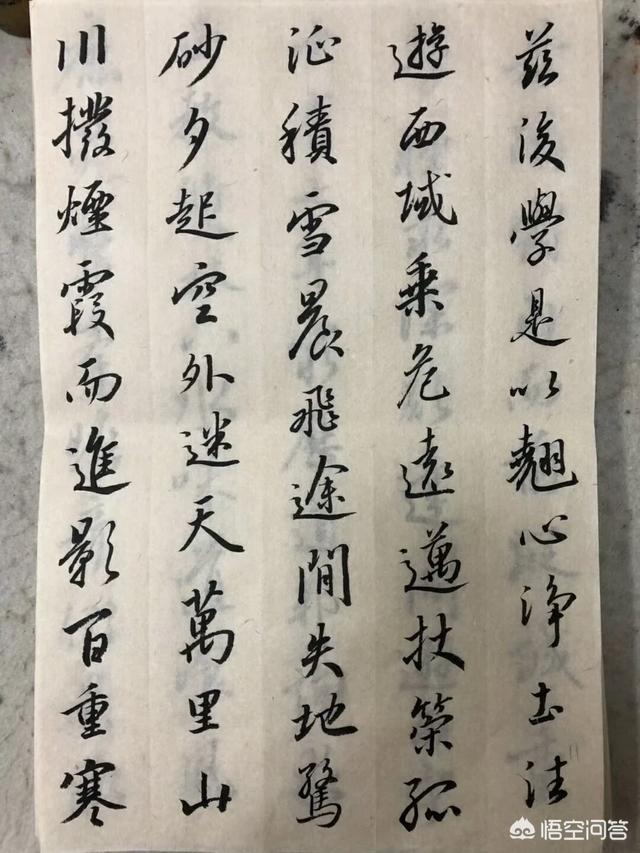 茲後學是以翹心淨土法
遊西域乘危遠邁杖策孤
征積雪晨飛途閒失地驚
砂夕起空外迷天萬里山
川撥煙霞而進影百重寒
悟空问答